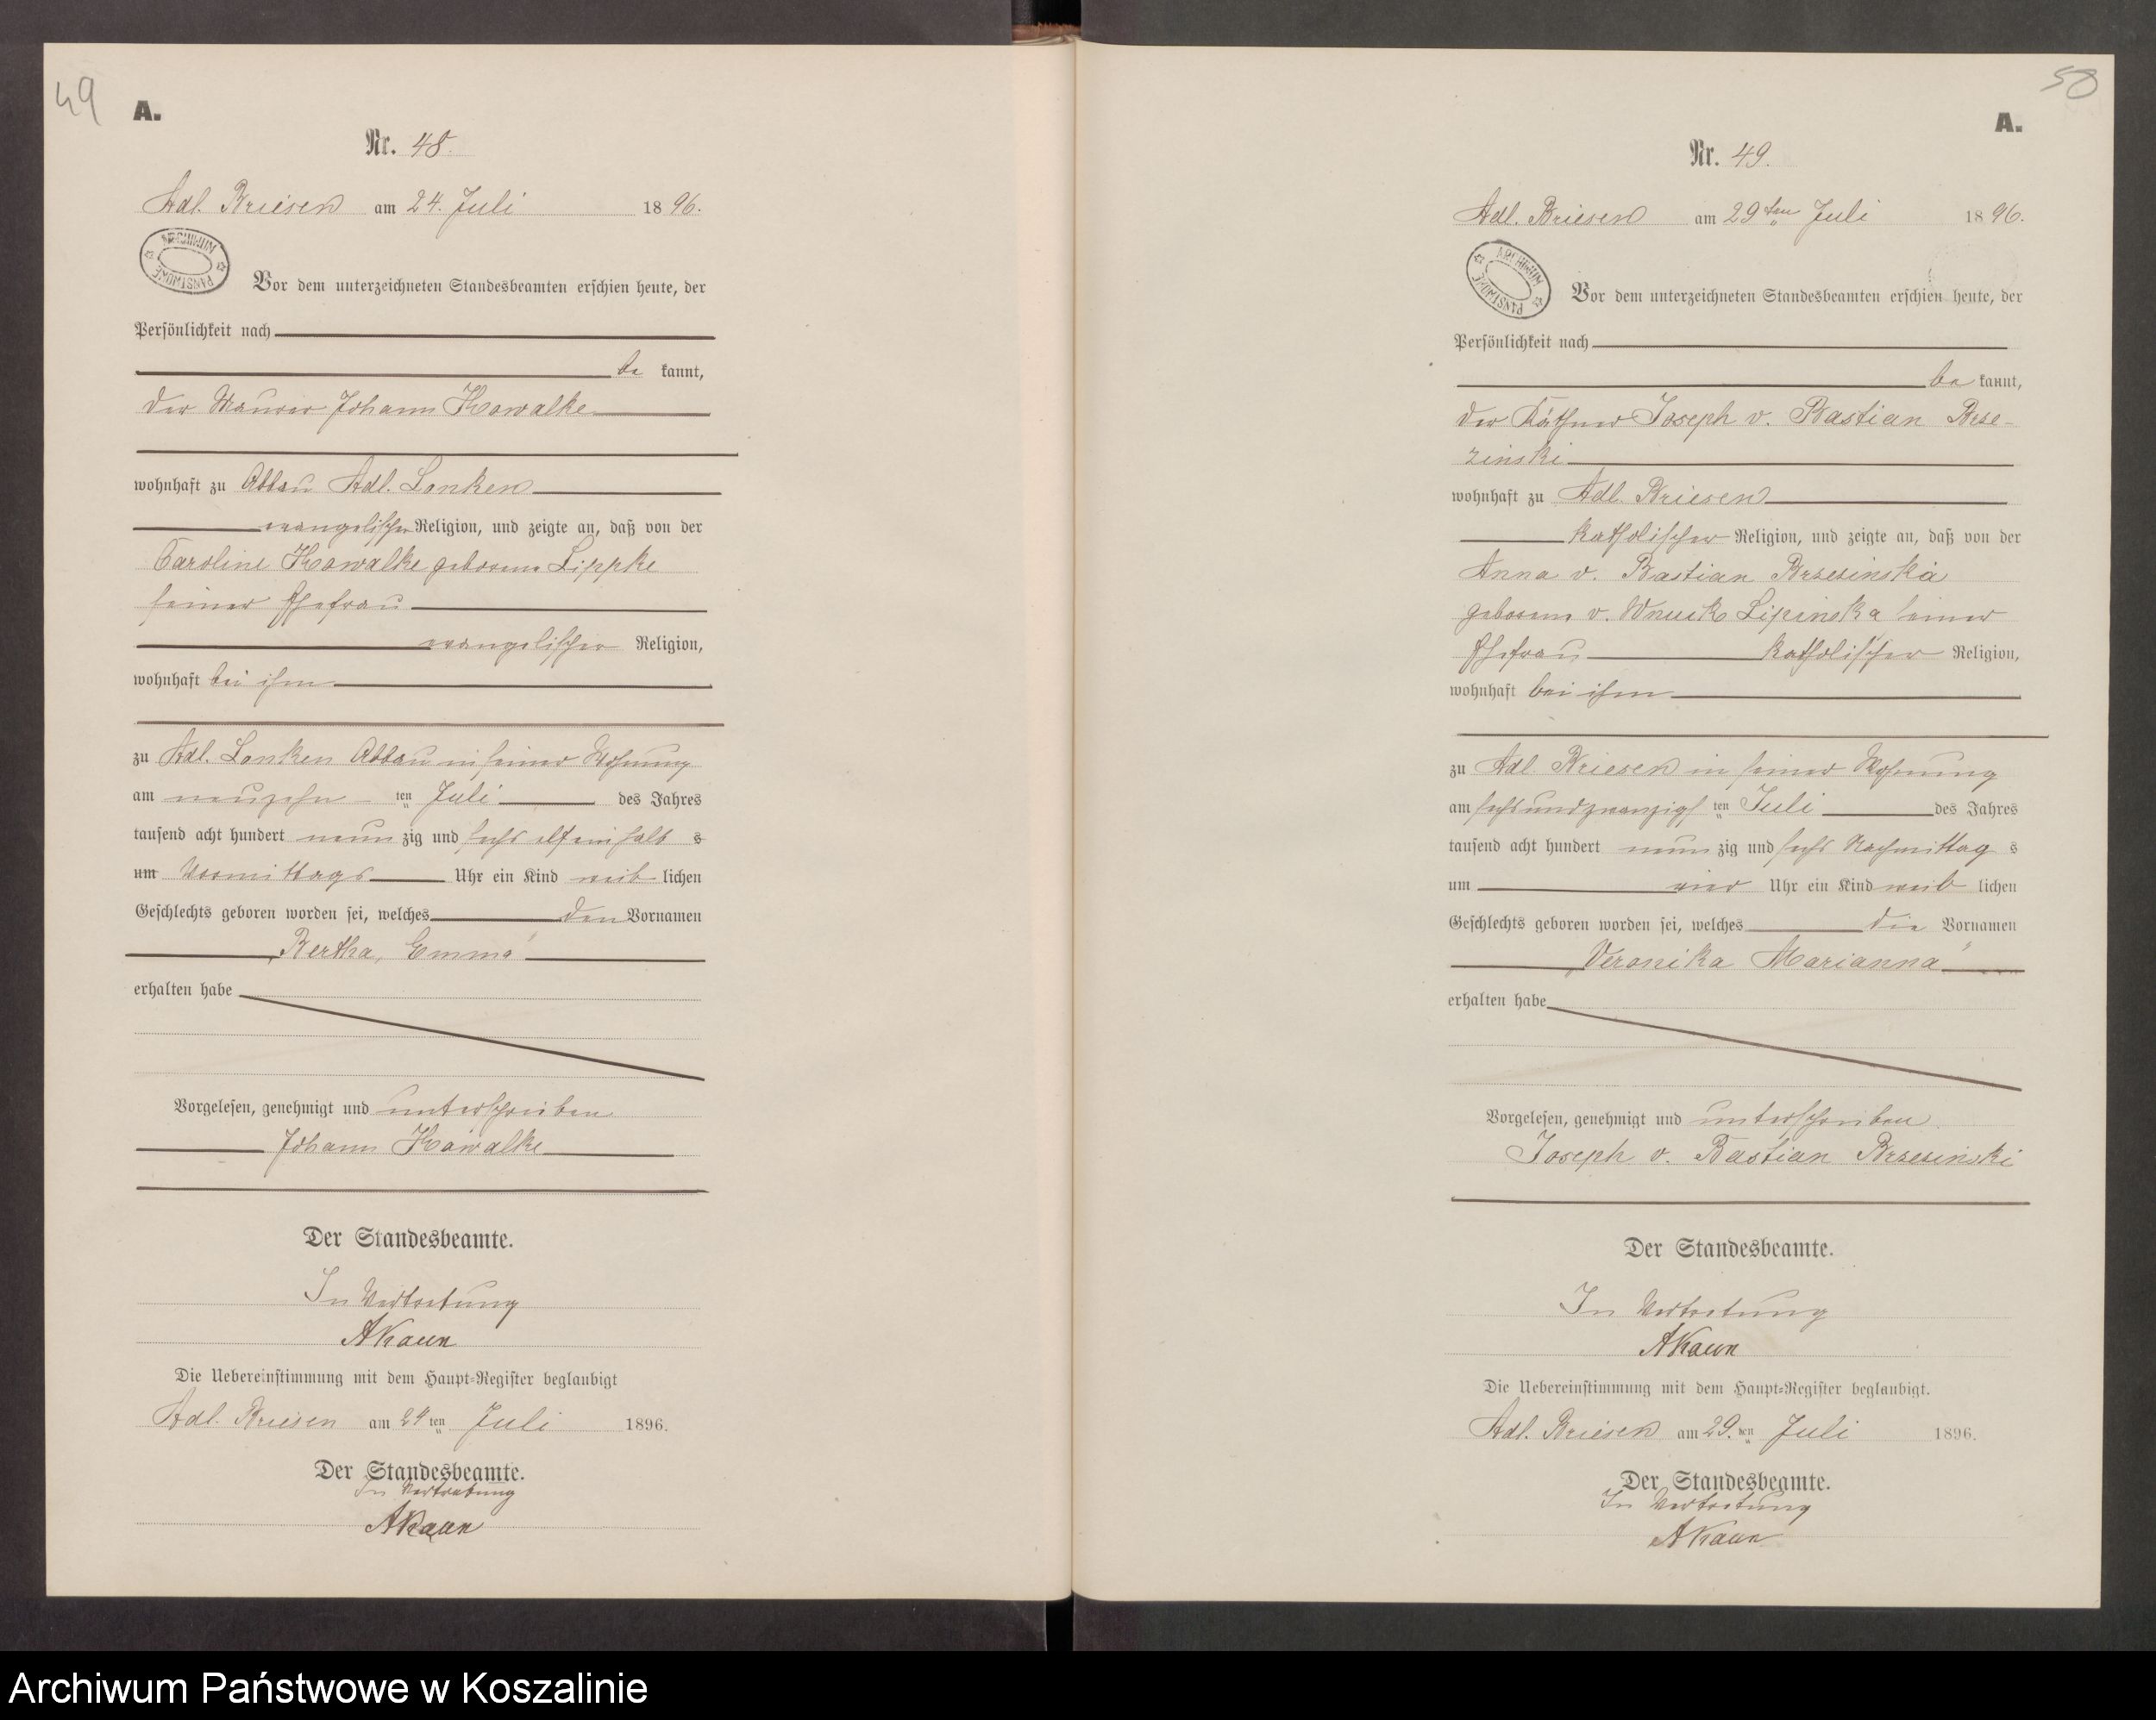 49
A.
Nr. 48.
Adl. Briesen am 24. Juli 1896.
ARCHIWUM PAŃSTWOWE
Vor dem unterzeichneten Standesbeamten erschien heute, der
Persönlichkeit nach
be kannt,
der Maurer Johann Kowalke
wohnhaft zu Abbau Adl. Lonken
evangelischer Religion, und zeigte an, daß von der
Caroline Kowalke geborene Lippke
seiner Ehefrau
evangelischer Religion,
wohnhaft bei ihm
zu Adl. Lonken Abbau in seiner Wohnung
am neunzehn ten Juli des Jahres
tausend acht hundert neun zig und sechs elfeinhalb s
um Vormittags Uhr ein Kind weib lichen
Geschlechts geboren worden sei, welches den Vornamen
„Bertha, Emma"
erhalten habe
Vorgelesen, genehmigt und unterschrieben
Johann Kowalke
Der Standesbeamte.
In Vertretung
AKaun
Die Uebereinstimmung mit dem Haupt=Register beglaubigt
Adl. Briesen am 24 ten Juli 1896.
Der Standesbeamte.
In Vertretung
AKaun
50
A.
Nr. 49.
Adl. Briesen am 29ten Juli 1896.
ARCHIWUM PAŃSTWOWE
Vor dem unterzeichneten Standesbeamten erschien heute, der
Persönlichkeit nach
be kannt,
der Käthner Joseph v. Bastian Brse-
zinski
wohnhaft zu Adl. Briesen
katholischer Religion, und zeigte an, daß von der
Anna v. Bastian Brzezinska
geborene v. Wnuck Lipinska seiner
Ehefrau katholischer Religion,
wohnhaft bei ihm
zu Adl. Briesen in seiner Wohnung
am sechsundzwanzigs ten Juli des Jahres
tausend acht hundert neun zig und sechs Nachmittag s
um vier Uhr ein Kind weib lichen
Geschlechts geboren worden sei, welches die Vornamen
„Veronika Marianna"
erhalten habe
Vorgelesen, genehmigt und unterschrieben.
Joseph v. Bastian Brzezinski
Der Standesbeamte.
In Vertretung
AKaun
Die Uebereinstimmung mit dem Haupt=Register beglaubigt.
Adl. Briesen am 29. ten Juli 1896.
Der Standesbeamte.
In Vertretung
AKaun
Archiwum Państwowe w Koszalinie